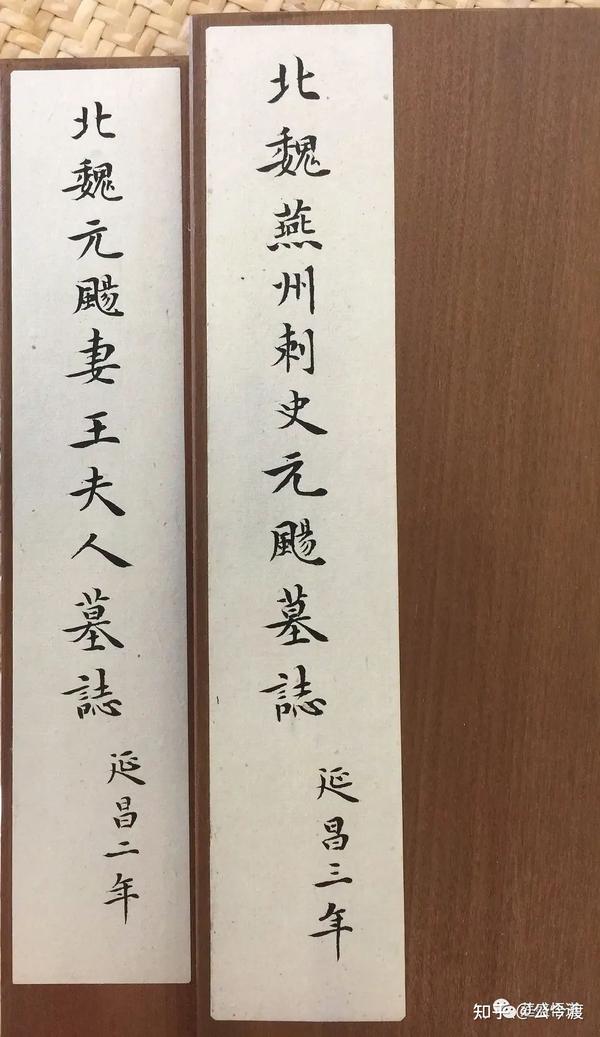 北魏燕州刺史元颺墓誌
延昌三年
北魏元颺妻王夫人墓誌
延昌二年
知乎 @公今渡